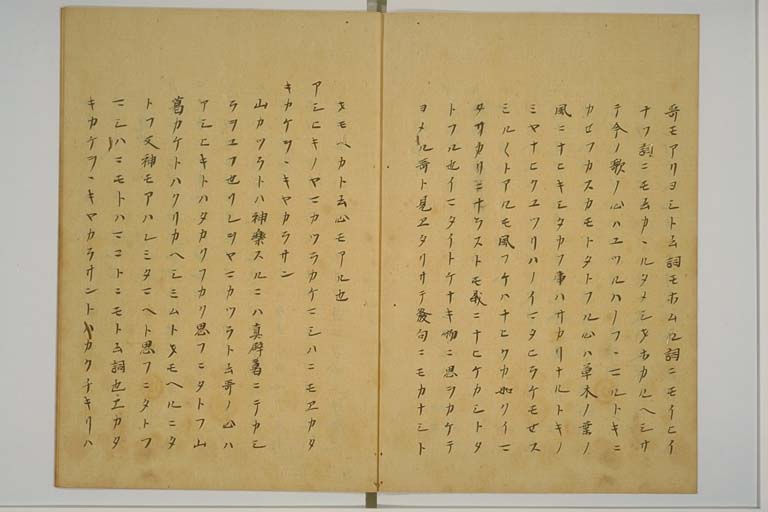 哥モアリヨシト云詞モホムル詞ニモイヒイ
ナフ詞ニモ云カヽルタメシヲホカルヘシサ
テ今ノ歌ノ心ハユツルハノフヽマルトキニ
カセフカスカモトタトフル心ハ草木ノ葉ノ
風ニナヒキシタカフ事ハサカリナルトキノ
ミマナヒクユツリハノイマタヒラケモセス
ミルくトアルモ風フケハナヒクカ如クイマ
タサカリニナラストモ我ニナヒケカシトタ
トフル也イマタイトケナキ物ニ思ヲカケテ
ヨメル哥ト見エタリサテ發句ニモカナシト
ヲモヘカト云心モアル也
アシヒキノヤマカツラカケマシハニモエカタ
キカケヲヽキヤカラサン
山カツラトハ神樂スルニハ真辟葛ニテカシ
ラヲユフ也ソレヲヤマカツラト云哥ノ心ハ
アシヒキトハタカクフカク思フニタトフ山
葛カケトハクリカヘシミムトヲモヘルニタ
トフ又神モアハレミタマヘト思フニタトフ
マシハニモトハマコトニモト云詞也エカタ
キカケヲヽキヤカラサントハカクチキリハ